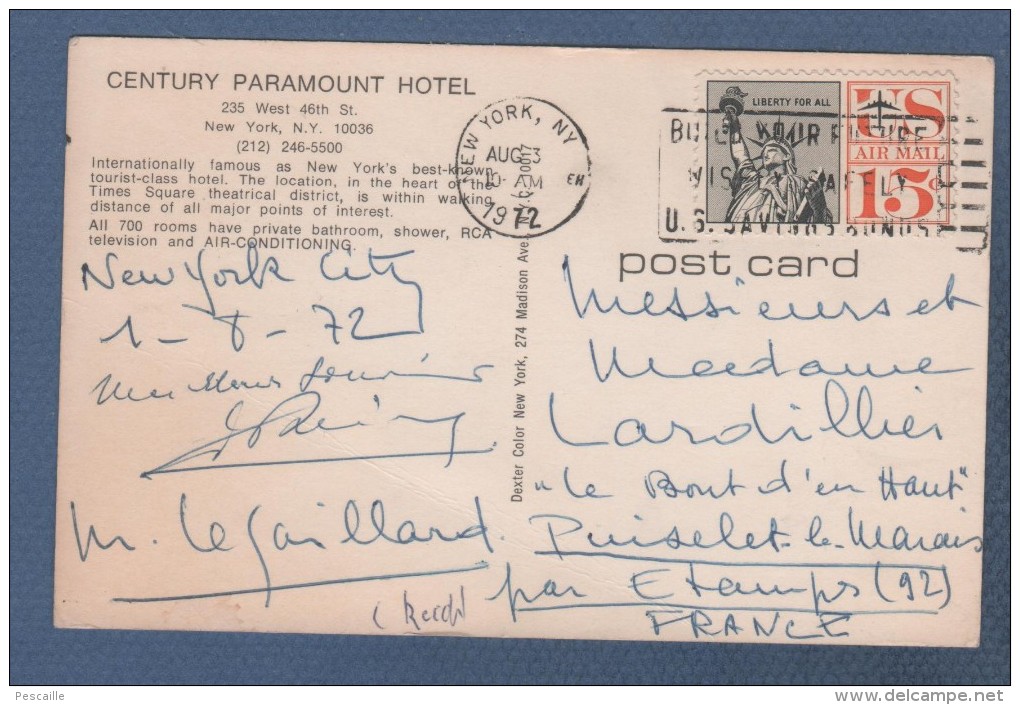 CENTURY PARAMOUNT HOTEL
235 West 46th St.
New York, N.Y. 10036
(212) 246-5500
Internationally famous as New York's best-known
tourist-class hotel. The location, in the heart of the
Times Square theatrical district, is within walking
distance of all major points of interest.
All 700 rooms have private bathroom, shower, RCA
television and AIR-CONDITIONING.
New York City
1-8-72
M. Le Gaillard
NEW YORK, NY
AUG 3
10-AM
EH
1972
Dexter Color New York, 274 Madison Ave., N.Y.C. 10017
LIBERTY FOR ALL
US
AIR MAIL
15c
BUILD YOUR FUTURE
WISELY SAFELY
U.S. SAVINGS BONDS
post card
Messieurs et
Madame
Lardillier
"Le Bout d'en Haut"
Puiselet-le-Marais
par Etamps (92)
FRANCE
Pescaille
www.delcampe.net